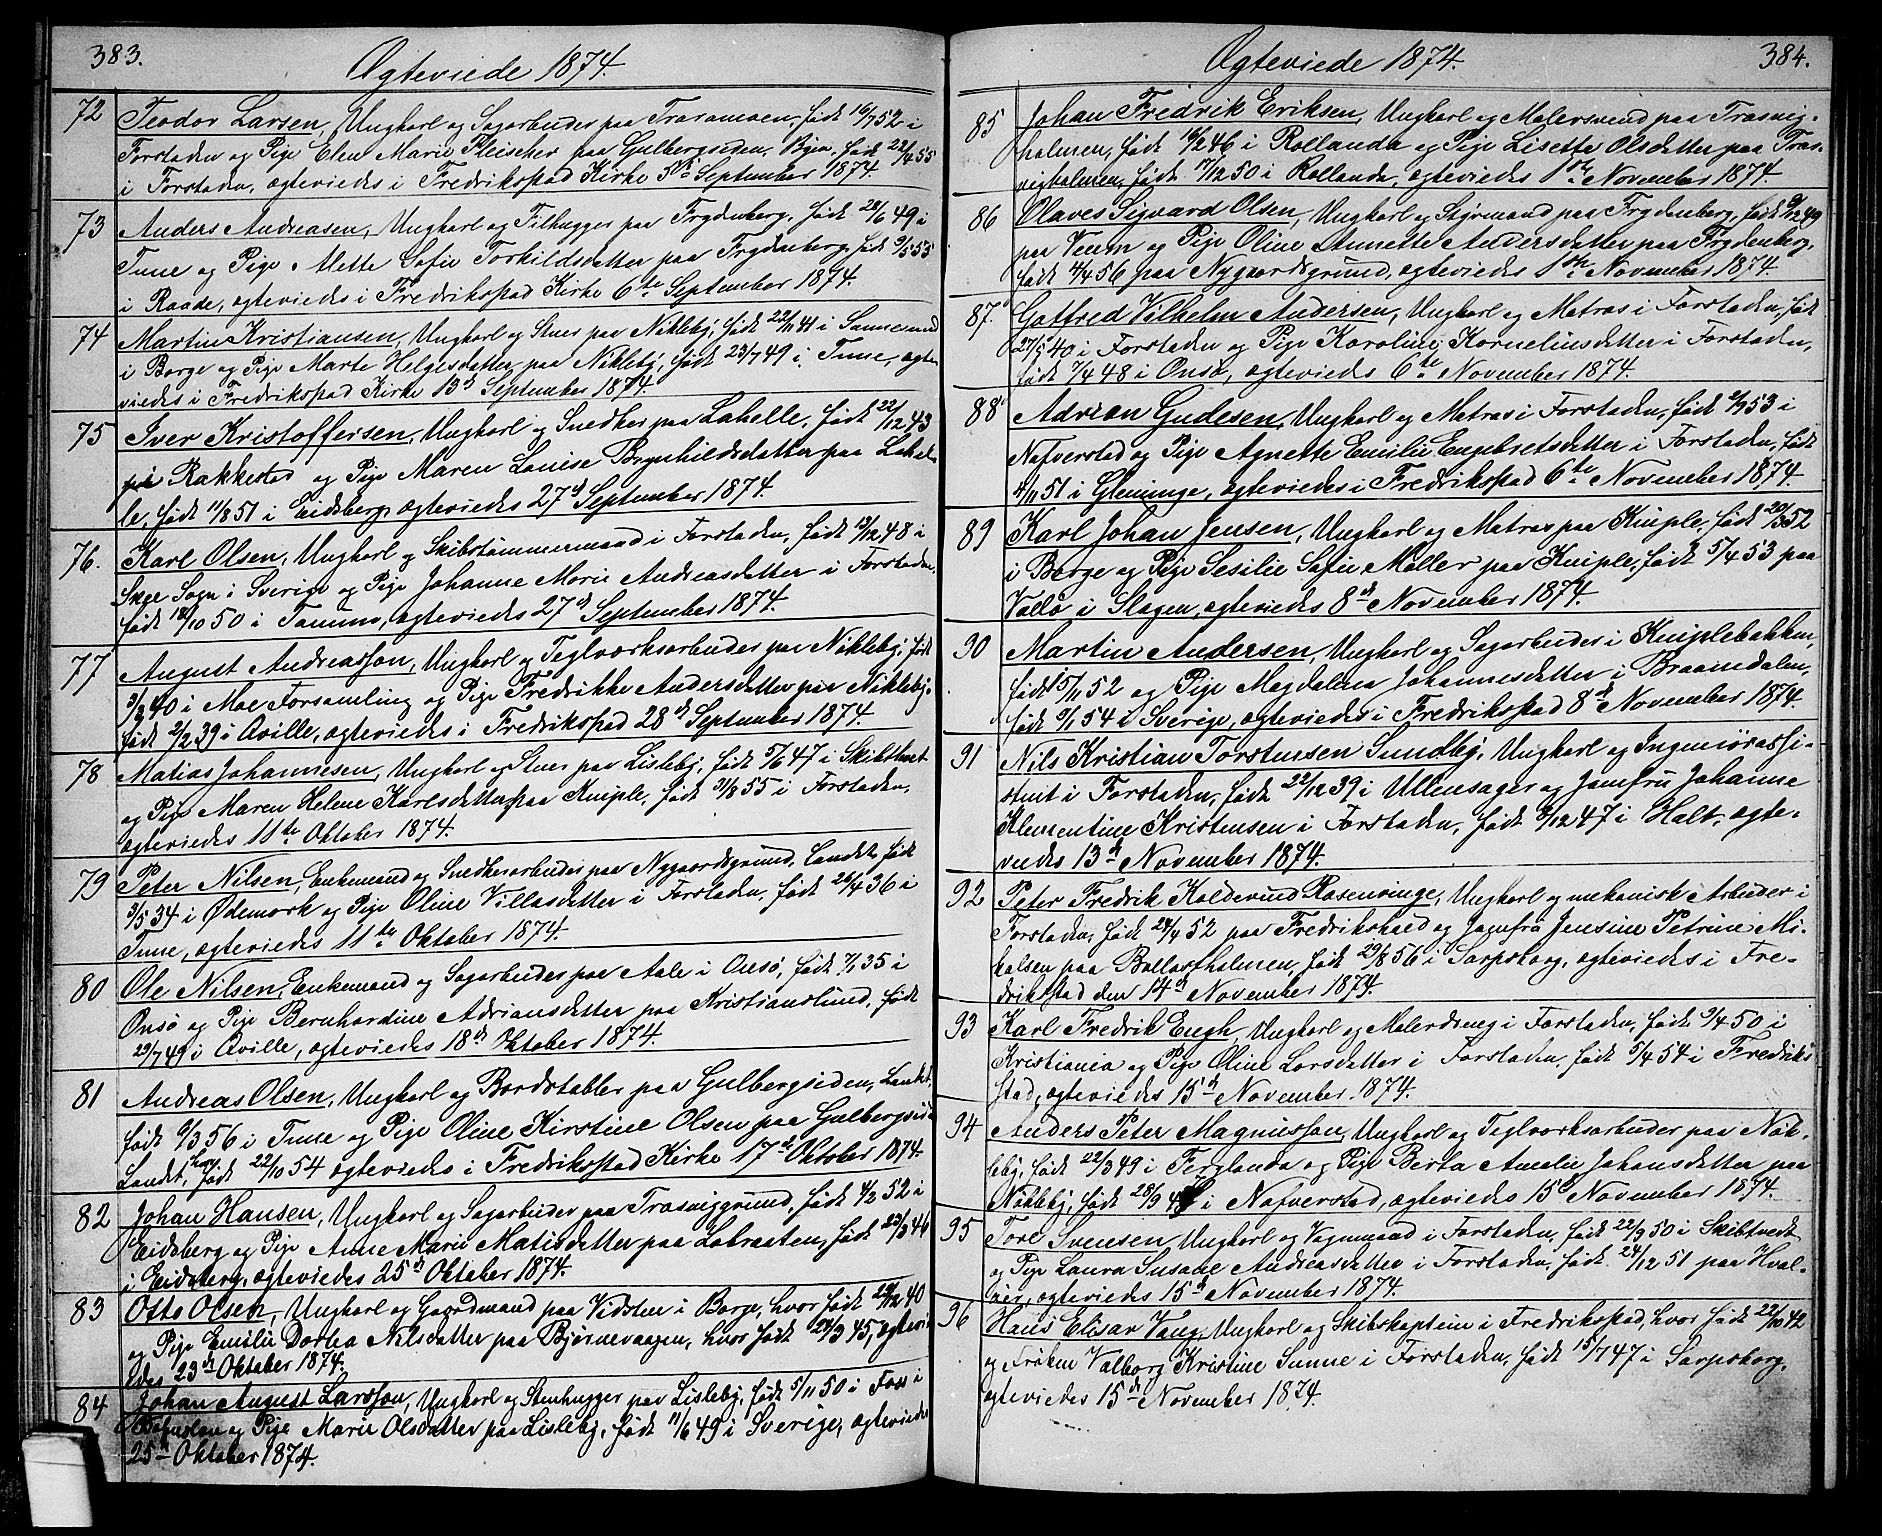 383.
Ægteviede 1874.
72 Teodor Larsen, Ungkarl og Sagarbeider paa Traramoen, født 16/7 52 i
Forstaden og Pige Elen Marie Fleischer paa Gulbergsiden, Byen, født 22/4 55
i Forstaden, ægteviedes i Fredrikstad Kirke 5te September 1874
73 Anders Andreasen, Ungkarl og Filhugger paa Frydenberg, født 28/6 49 i
Tune og Pige Mette Sofie Torkildsdatter paa Frydenberg, født 9/5 53
i Raade, ægteviedes i Fredrikstad Kirke 6te September 1874.
74 Martin Kristiansen, Ungkarl og Stuer paa Nøklebÿ, født 22/11 41 i Sannesund
i Borge og Pige Marte Helgesdatter paa Nøklebÿ, født 23/7 49 i Tune, ægte
viedes i Fredrikstad Kirke 13d September 1874.
75 Iver Kristoffersen, Ungkarl og Snedker paa Lahelle, født 22/12 43
i Rakkestad og Pige Maren Louise Brynhildsdatter paa Lahel-
le, født 11/8 51 i Eidsberg, ægteviedes 27d September 1874.
76. Karl Olsen, Ungkarl og Skibstømmermand i Forstaden, født 13/12 48 i
Skee Sogn i Sverige og Pige Johanne Marie Andreasdatter i Forstaden,
født 18/10 50 i Tanum, ægteviedes 27d September 1874.
77 August Andreasson, Ungkarl og Teglverksarbeider paa Nøklebÿ, født
3/3 40 i Moe Forsamling og Pige Fredrikke Andersdatter paa Nøklebÿ,
født 2/2 39 i Aville, ægteviedes i Fredrikstad 28d September 1874.
78 Matias Johannesen, Ungkarl og Stuer paa Lislebÿ, født 5/6 47 i Skibthvet
og Pige Maren Helene Karlsdatter paa Kniple, født 31/8 55 i Forstaden,
ægteviedes 11te Oktober 1874.
79 Peter Nilsen, Enkemand og Snedkerarbeider paa Nygaardsgrund, Landet, født
3/5 34 i Ødemork og Pige Oline Villasdatter i Forstaden, født 26/4 36 i
Tune, ægteviedes 11te Oktober 1874.
80 Ole Nilsen, Enkemand og Sagarbeider paa Aale i Onsø, født 7/1 35 i
Onsø og Pige Bernhardine Adriansdatter paa Kristianslund, født
29/7 49 i Aville, ægteviedes 18d Oktober 1874.
81 Andreas Olsen, Ungkarl og Bordstabler paa Gulbergsiden, Landet,
født 9/3 56 i Tune og Pige Oline Kirstine Olsen paa Gulbergsid
Landet, hvor født 22/10 54 ægteviedes i Fredrikstad Kirke 17d Oktober 1874.
82 Johan Hansen, Ungkarl og Sagarbeider paa Trasviggrund, født 4/2 52 i
Eidsberg og Pige Anne Marie Matisdatter paa Labraaten, født 23/3 46
i Eidsberg, ægteviedes 25d Oktober 1874.
83 Otto Olsen, Ungkarl og Gaardmand paa Vidsten i Borge, hvor født 29/12 40
og Pige Emilie Dortea Nilsdatter paa Bjørnevaagen, hvor født 24/3 45, ægtevie
des 23d Oktober 1874.
84 Johan August Larsson, Ungkarl og Stenhugger paa Lislebÿ, født 5/11 50 i Foss i
Bohuslen og Pige Marie Olsdatter paa Lislebÿ, født 11/6 49 i Sverige, ægteviedes
25d Oktober 1874.
384.
Ægteviede 1874.
85 Johan Fredrik Eriksen, Ungkarl og Malersvend paa Trasvig-
holmen, født 16/2 46 i Rollanda og Pige Lisette Olsdatter paa Tras-
vigholmen, født 17/12 50 i Rollanda, ægteviedes 1ste November 1874.
86 Olaves Sigvard Olsen, Ungkarl og Styrmand paa Frydenberg, født 9/12 49
paa Veum og Pige Oline Annette Andersdatter paa Frydenberg,
født 4/4 56 paa Nygaardsgrund, ægteviedes 1ste November 1874.
87. Gotfred Vilhelm Andersen, Ungkarl og Matros i Forstaden, født
27/5 40 i Forstaden og Pige Karoline Korneliusdatter i Forstaden,
født 7/4 48 i Onsø, ægteviedes 6te November 1874.
88 Adrian Gudesen, Ungkarl og Matros i Forstaden, født 2/9 53 i
Nafverstad og Pige Agnette Emilie Engebretsdatter i Forstaden, født
4/11 51 i Gleminge, ægteviedes i Fredrikstad 6te November 1874.
89 Karl Johan Jensen, Ungkarl og Matros paa Kniple, født 20/3 52
i Borge og Pige Sesilie Sofie Møller paa Kniple, født 5/4 53 paa
Vallø i Slagen, ægteviedes 8d November 1874.
90 Martin Andersen, Ungkarl og Sagarbeider i Kniplebakken,
født 15/11 52 og Pige Magdalena Johannesdatter i Braanedalen,
født 9/1 54 i Sverige, ægteviedes i Fredrikstad 8d November 1874.
91 Nils Kristian Torstensen Sundbÿ, Ungkarl og Ingeniørassi-
stent i Forstaden, født 22/12 39 i Ullensager og Jomfru Johanne
Klementine Kristensen i Forstaden, født 9/12 47 i Holt, ægte-
viedes 13d November 1874.
92 Peter Fredrik Koldevind Rosenvinge, Ungkarl og mekanisk Arbeider i
Forstaden, født 24/4 52 paa Fredrikshald og Jomfru Jensine Petrine Mi-
kalsen paa Ballastholmen, født 29/8 56 i Sarpsborg, ægteviedes i Fre-
drikstad den 14d November 1874.
93 Karl Fredrik Engh, Ungkarl og Malerdreng i Forstaden, født 9/4 50 i
Kristiania og Pige Oline Larsdatter i Forstaden, født 5/4 54 i Fredrik
stad, ægteviedes 15d November 1874.
94 Anders Peter Magnusson, Ungkarl og Teglverksarbeider paa Nøk-
lebÿ, født 22/3 49 i Ferglanda og Pige Berta Amelie Johansdatter paa
Nøklebÿ, født 28/9 48 i Nafverstad, ægteviedes 15d November 1874.
95 Tore Svensen, Ungkarl og Vognmand i Forstaden, født 22/9 50 i Skibtvedt
og Pige Laura Susane Andreasdatter i Forstaden, født 24/12 51 paa Hval-
øer, ægteviedes 15d November 1874.
96 Hans Elisar Vang, Ungkarl og Skibskaptein i Fredrikstad, hvor født 22/10 42
og Frøken Valborg Kristine Sunne i Forstaden, født 15/7 47 i Sarpsborg,
ægteviedes 15d November 1874.